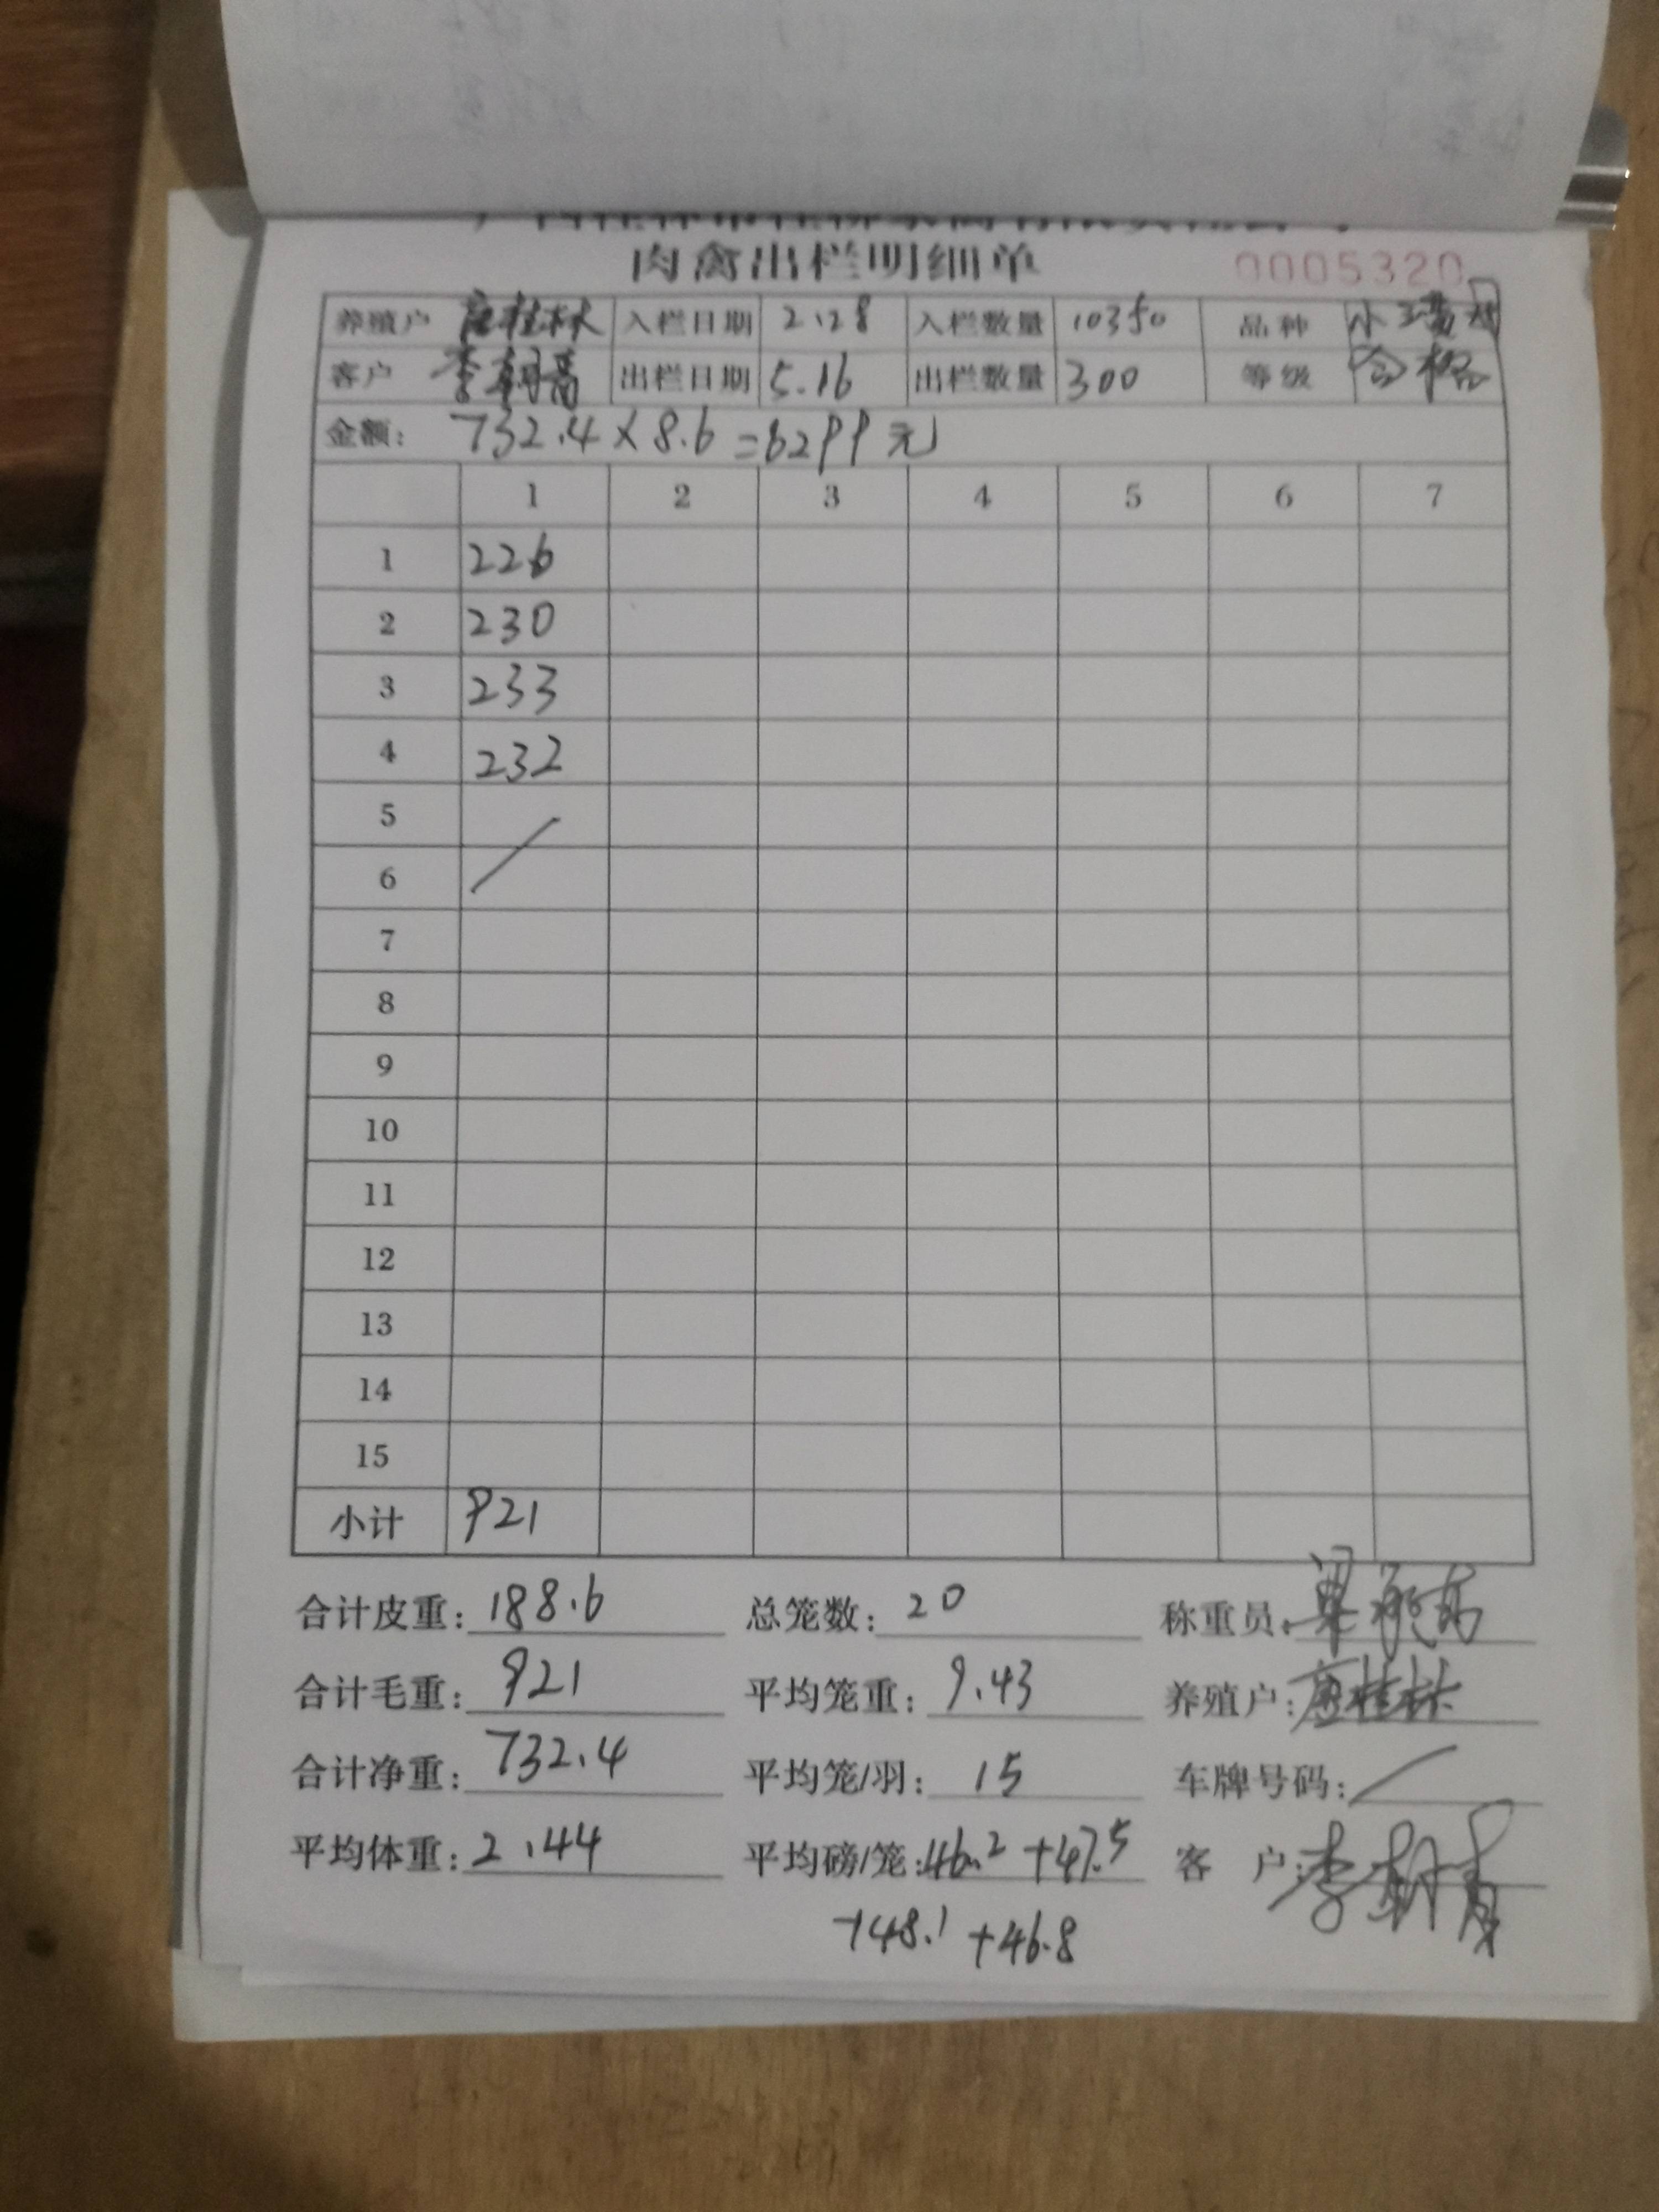 肉禽出栏明细单 0005320
养殖户 唐桂林 入栏日期 2.28 入栏数量 10350 品种
客户 李朝 出栏日期 5.16 出栏数量 300 等级 合格
金额: 732.4×8.6=6299元
1 2 3 4 5 6 7
1 226
2 230
3 233
4 232
5
6
7
8
9
10
11
12
13
14
15
小计 921
合计皮重: 188.6 总笼数: 20 称重员:
合计毛重: 921 平均笼重: 9.43 养殖户: 唐桂林
合计净重: 732.4 平均笼/羽: 15 车牌号码: /
平均体重: 2.44 平均磅/笼: 46.2 +47.5 客 户: 李朝
+48.1 +46.8